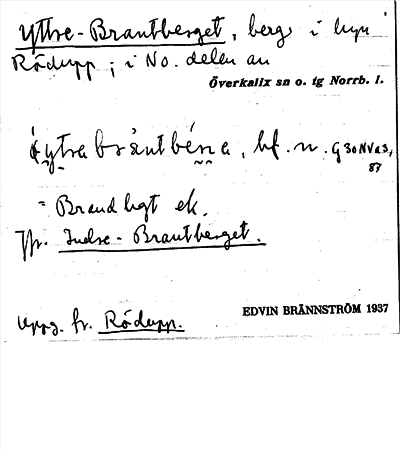 Yttre-Brantberget, berg i byn
Rödupp; i No. delen av
Överkalix sn o. tg Norrb. l.
bf. n.
= Brand ligt ek.
Jfr. Indre-Brantberget.
Uppg. fr. Rödupp.
EDVIN BRÄNNSTRÖM 1937